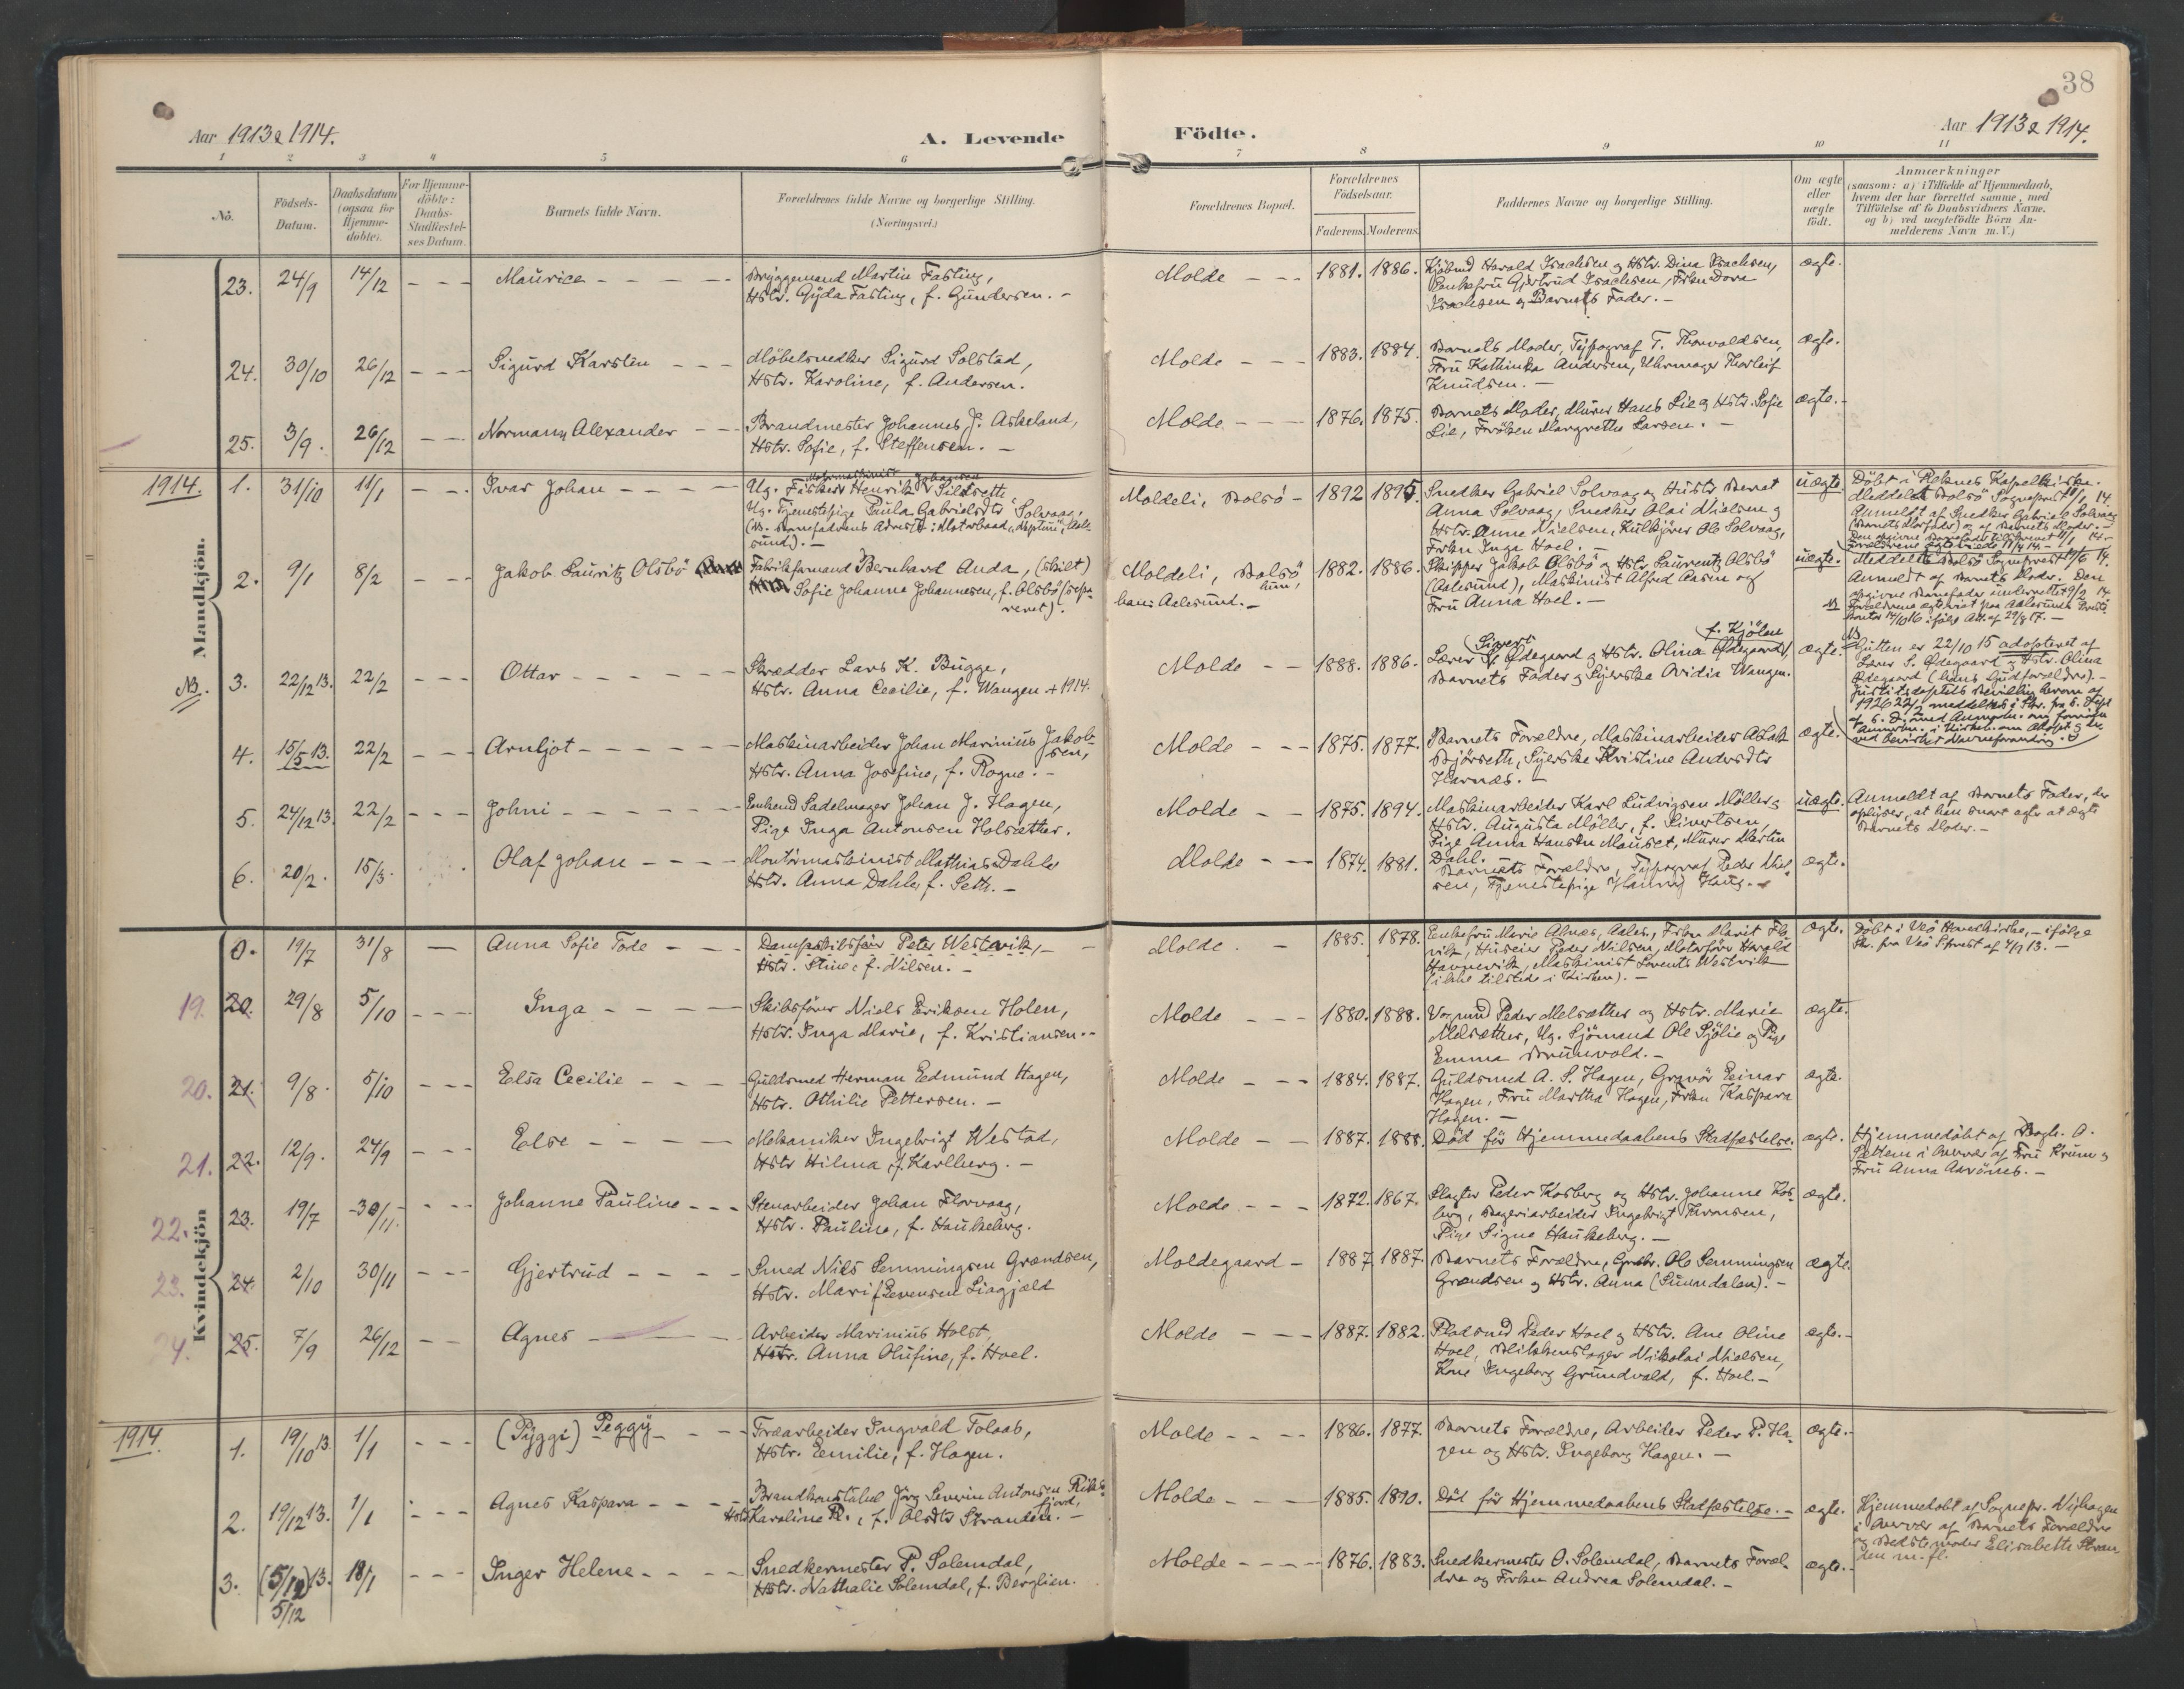 38
Aar 1913 & 1914.
A. Levende Fødte.
Aar 1913 & 1914.
1 2 3 4 5 6 7 8 9 10 11
No.
Födsels-Datum.
Daabsdatum (ogsaa for Hjemmedöbte).
For Hjemmedöbte: Daabs-Stadfæstelses Datum.
Barnets fulde Navn.
Forældrenes fulde Navne og borgerlige Stilling.
(Næringsvei.)
Forældrenes Bopæl.
Forældrenes Födselsaar.
Faderens. Moderens.
Faddernes Navne og borgerlige Stilling.
Om ægte eller uægte født.
Anmærkninger
(saasom: a) i Tilfælde af Hjemmedaab,
hvem der har forrettet samme, med
Tilföielse af to Daabsvidners Navne,
og b) ved uægtefödte Börn An-
melderens Navn m. V.)
Mandkjön.
23. 24/9 14/12 - - - Maurice - - - - Bryggemand Martin Fasting,
Hstr. Gyda Fasting, f. Gundersen. -
Molde - - 1881. 1886. Kjöbmd Harald Isachsen og Hstr. Dina Isachsen,
Enkefru Gjertrud Isachsen, Frkn Dora
Isachsen og Barnets Fader. -
ægte.
24. 30/10 26/12 - - - Sigurd Karsten - - - Möbelsnedker Sigurd Solstad,
Hstr. Karoline, f. Andersen.
Molde - - - 1883. 1884. Barnets Moder, Typograf T. Thorvaldsen,
Fru Kathinka Andersen, Uhrmager Thorleif
Knudsen. -
ægte.
25. 3/9. 26/12 - - - Normann Alexander - - Brandmester Johannes J. Askeland,
Hstr. Sofie, f. Steffensen. -
Molde - - - 1876. 1875. Barnets Moder, Murer Hans Lie og Hstr. Sofie
Lie, Fröken Margrethe Larsen. -
ægte. -
1914. 1. 31/10 11/1 - - - Ivar Johan - - - - Ug. Fisker Henrik Johansen Sildseth
Ug. Tjenestepige Paula Gabrielsdtr Solvaag,
(N. Barnefaderens Adresse: Motorbaad "Neptun", Aale-
sund). -
Moldeli, Bolsö - 1892 1895 Snedker Gabriel Solvaag og Hustr Beret
Anna Solvaag, Snedker Olai Nielsen og
Hstr. Anna Nielsen, Kulkjörer Ole Solvaag,
Frkn Inga Hoel. -
uægte. Döbt i Reknes Kapelkirke.
Meddelt Bolsö Sogneprest 11/1 14.
Anmeldt af Snedker Gabriel Solvaag
(Barnets Morfader) og af Barnets Moder. -
2. 9/1 8/2 - - - Jakob Lauritz Olsbö Fabrikformand Bernhard Anda, (skilt)
Sofie Johanna Johannesen, f. Olsbö (sepa-
reret).
Moldeli, Bolsö
hun,
han: Aalesund. -
1882. 1886. Skipper Jakob Olsbö og Hstr. Laurentz Olsbö
(Aalesund), Maskinist Alfred Aasen og
Fru Anna Hoel. -
uægte. Meddelt Bolsö Sogneprest 14.
Anmeldt af Barnets Moder. Den
opgivne Barnefader underrettet 9/2 14
NB Forældrene ægteviet paa Aalesunds
NB. 3. 22/12 13. 22/2 - - - Ottar - - - - - Skrædder Lars K. Bugge,
Hstr. Anna Cecilie, f. Wangen + 1914.
Molde - - 1888. 1886. Lærer Sivert Ødegaard og Hstr. Olina Ødegaard, f. Kjölne
Barnets Fader og Syerske Ovidia Wangen.
ægte. NB Gutten er 22/10 15 adopteret af
Lærer S. Ødegaard og Hstr. Olina
Ødegaard (hans Gudforældre). -
4. 15/5 13. 22/2 - - - Arnljot - - - - - - Maskinarbeider Johan Marinius Jakob-
sen,
Hstr. Anna Josefine, f. Rogne. -
Molde - - - 1875. 1877. Barnets Forældre, Maskinarbeider Aslak
Björseth, Syerske Kristine Andersdtr
Harnes. -
ægte.
5. 24/12 13. 22/2 - - - Johni - - - - - Enkemd Sadelmager Johan J. Hagen,
Pige Inga Antonsen Holsæther.
Molde - - 1875. 1894. Maskinarbeider Karl Ludvigsen Möller og
Hstr. Augusta Möller, f. Sivertsen,
Pige Anna Hansdtr Mauset, Murer Martin
Dahl.
uægte. Anmeldt af Barnets Fader, der
oplyser, at han snart agter at ægte
Barnets Moder. -
6. 20/2. 15/3. Olaf Johan - - - - Montörmaskinist Mathias Dahle
Hstr. Anna Dahle, f. Seth. -
Molde - - - 1874. 1881. Barnets Forældre, Typograf Peder Niel-
sen, Tjenestepige Hanna Haug. -
ægte.
Kvindekjön
0. 19/7 31/8 - Anna Sofie Tode - - - Dampskibsförer Peter Westavik, -
Hstr. Stine, f. Nilsen. -
Molde. - 1885. 1878. Enkefru Marie Alnæs, Aales., Frkn Marit
Huseier Peder Nilsen, Motorförer Harald
Havnevik, Maskinist Lorents Westvik
(ikke tilstede i Kirken). -
ægte. Döbt i Veö Hovedkirke, - ifölge
Sk. fra Veö Sprest af 4/9 13. -
19. 20. 29/8 5/10 - - - Inga - - - - Skibsförer Niels Eriksen Holen,
Hstr. Inga Marie, f. Kristiansen. -
Molde - - - 1880. 1888. Vognmd Peder Melsæther og Hstr. Marie
Melsæther, Ug. Sjömand Ole Sjölie og Pige
Emma Brunvold. -
ægte.
20. 21. 9/8. 5/10 - - - Elsa Cecilie - - - Guldsmed Herman Edmund Hagen,
Hstr. Othilie Pettersen. -
Molde - - - 1884. 1887. Guldsmed A. S. Hagen, Gravör Einar
Hagen, Fru Martha Hagen, Frkn Kaspara
Hagen. -
ægte.
21. 22. 12/9. 24/9 - - - Else - - - - Mekaniker Ingebrigt Westad,
Hstr Hilma, f. Karlberg. -
Molde - - 1887. 1888. Död för Hjemmedaabens Stadfæstelse. ægte. Hjemmedöbt af Bagh. O.
Settem i Overvær af Fru Krum og
Fru Anna Aarönes. -
22. 23. 19/7 30/11. - - - Johanne Pauline - - - Stenarbeider Johan Florvaag,
Hstr. Pauline, f. Haukeberg.
Molde - - - 1872. 1867. Slagter Peder Kosberg og Hstr. Johanne Kos-
berg, Bageriarbeider Ingebrigt Aronsen,
Pige Signe Haukeberg. -
ægte.
23. 24. 2/10 30/11 - - - Gjertrud - - - - Smed Nils Semmingsen Grændsen,
Hstr. Mari f. Evensen Liagjæld
Moldegaard - 1887. 1887. Barnets Forældre, Gbr. Ole Semmingsen
Grændsen og Hstr. Anna (Sunndalen). -
ægte.
24. 25. 7/9 26/12 - - Agnes - - - - Arbeider Marinius Holst,
Hstr. Anna Olufine, f. Hoel.
Molde - - - 1887. 1882. Pladsmd Peder Hoel og Hstr. Ane Oline
Hoel, Blikkenslager Nikolai Nielsen,
Kone Ingeborg Grundvald, f. Hoel. -
ægte. -
1914 1. 19/10 13. 1/1 - - - (Pyggi) Peggy - - - Træarbeider Ingvald Tolaas,
Hstr. Emilie, f. Hagen.
Molde - - - - 1886. 1877. Barnets Forældre, Arbeider Peder P. Ha-
gen og Hstr. Ingeborg Hagen. -
ægte. -
2. 19/12 13. 1/1 - - - Agnes Kaspara - - - Brandkonstabel Jörg Severin Antonsen Riks-
fjord,
Hstr Karoline R., f. Olsdtr Stranden. -
Molde - - - 1885. 1890. Död för Hjemmedaabens Stadfæstelse. - ægte. Hjemmedöbt af Sognepr. Nyhagen
i Overvær af Barnets Forældre
og Bedstemoder Elisabeth Stran-
den m. fl.
3. (5/12) 13. 18/1 - - - Inger Helene - - - - Snedkermester P. Solemdal,
5/12
Hstr. Nathalie Solemdal, f. Berglien.
Molde - - - - 1876. 1883. Snedkermester O. Solemdal, Barnets Foræl-
dre og Frkn Andrea Solemdal. -
ægte. -